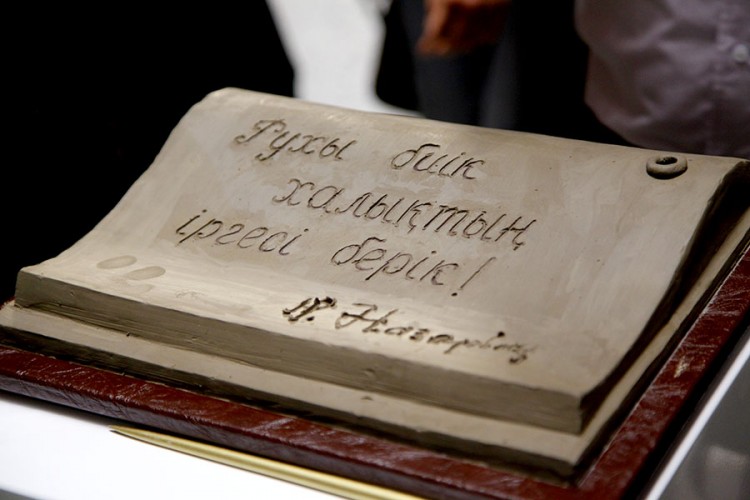 Рухы биік
халықтың
іргесі берік!